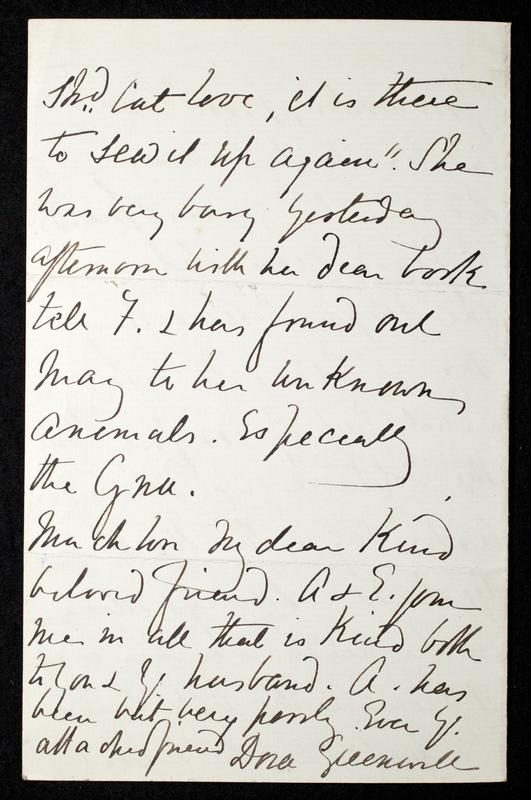 Shd. cut love, it is there
to sew it up again". She
was very busy yesterday
afternoon with her dear book
till 7. & has found out
many to her unknown
animals. Especially
the Gnu.
Much love my dear Kind
beloved friend. A & E. join
me in all that is kind both
to you & yr. husband. A. has
been but very poorly. Ever yr.
attached friend Dora Greenwell